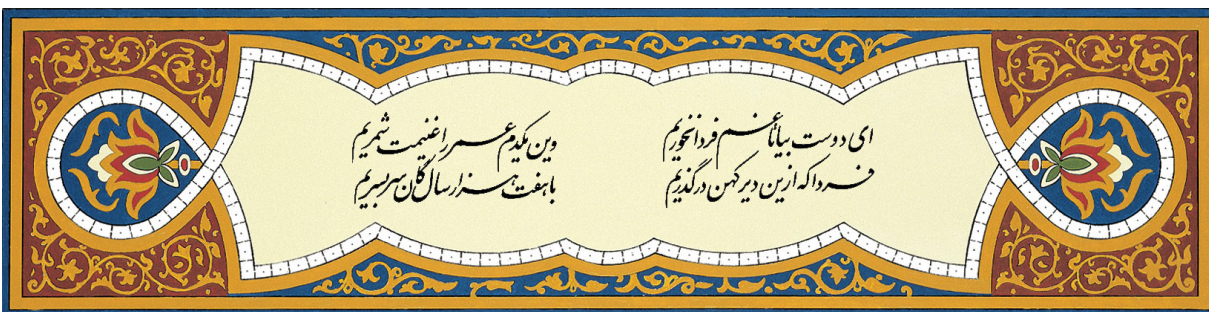 ای دوست بیا تا غم فردا نخوریم
وین یکدم عمر را غنیمت شمریم
فردا که ازین دیر کهن درگذریم
با هفت هزار سالگان سر بسریم